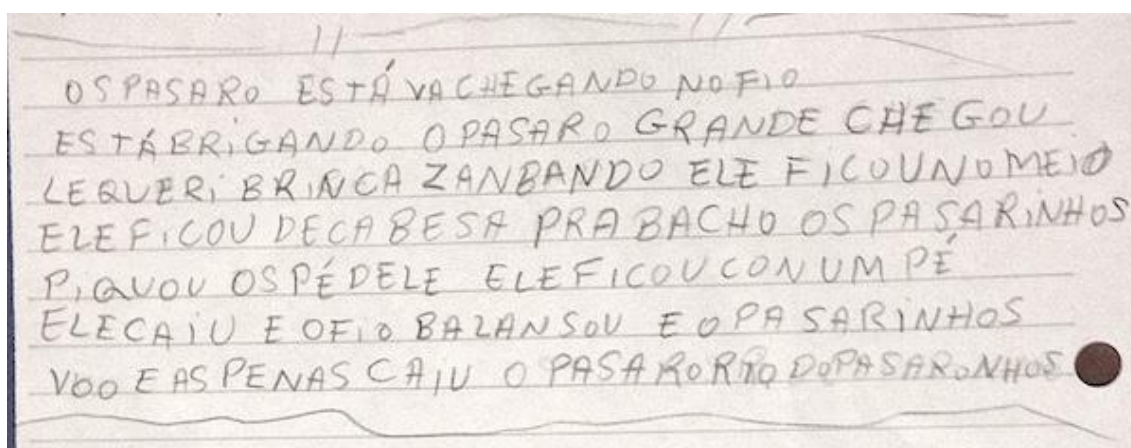 OS PASARO ESTÁVA CHEGANDO NO FIO
ESTÁ BRIGANDO O PASARO GRANDE CHEGOU
LE QUERI BRINCA ZANBANDO ELE FICOU NO MEIO
ELE FICOU DE CABESA PRA BACHO OS PASARINHOS
PIQUOU OS PÉ DELE ELE FICOU CON UM PÉ
ELE CAIU E O FIO BALANSOU E O PASARINHOS
VOO E AS PENAS CAIU O PASARO RIO DO PASARONHOS